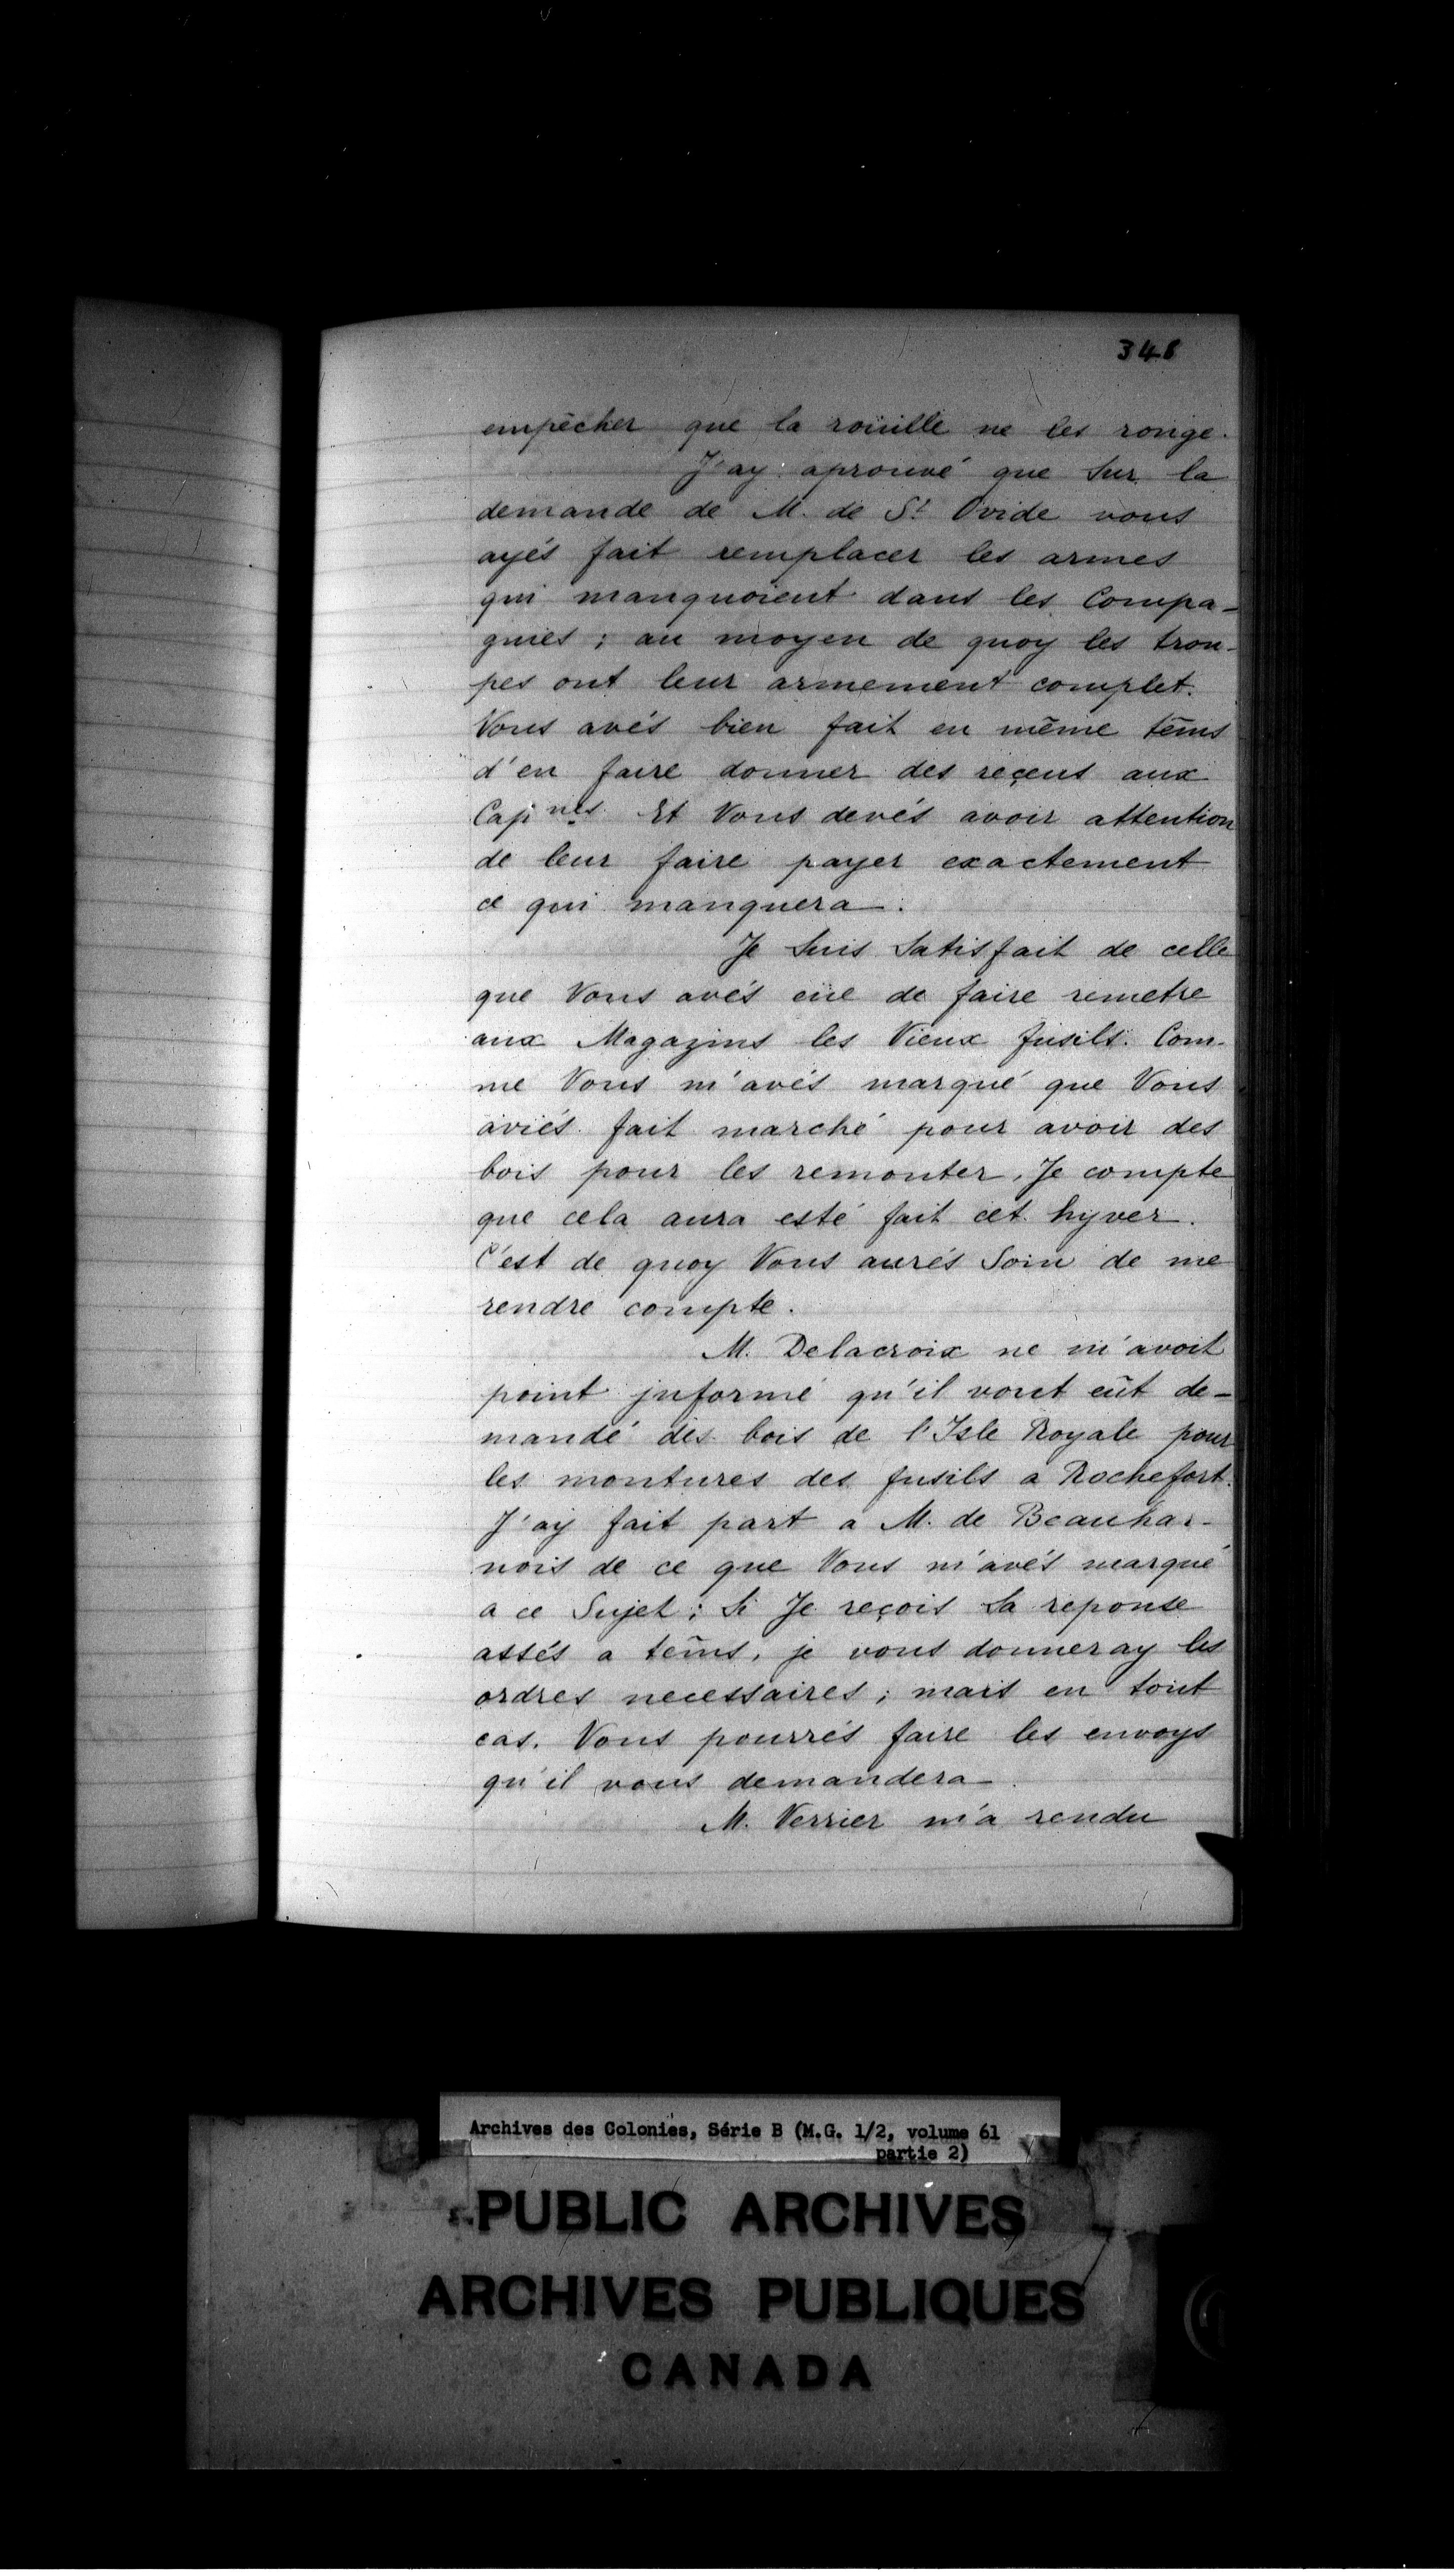 348
empêcher que la roüille ne les ronge.
J'ay aprouvé que Sur la
demande de M. de St Ovide vous
ayés fait remplacer les armes
qui manquoient dans les Compa-
gnies ; au moyen de quoy les trou-
pes ont leur armement complet.
Vous avés bien fait en même têms
d'en faire donner des reçeus aux
Capnes. Et Vous devés avoir attention
de leur faire payer exactement
ce qui manquera.
Je Suis Satisfait de celle
que Vous avés eüe de faire remetre
aux Magazins les Vieux fusils. Com-
me Vous m'avés marqué que Vous
aviés fait marché pour avoir des
bois pour les remonter, Je compte
que cela aura esté fait cet hyver.
C'est de quoy Vous aurés Soin de me
rendre compte.
M. Delacroix ne m'avoit
point jnformé qu'il vout eût de-
mandé des bois de l'Isle Royale pour
les montures des fusils a Rochefort.
J'ay fait part a M. de Beauhar-
nois de ce que Vous m'avés marqué
a ce Sujet ; Si Je reçois Sa reponse
assés a têms, je vous donneray les
ordres necessaires ; mais en tout
cas. Vous pourrés faire les envoys
qu'il vous demandera.
M. Verrier m'a rendu
Archives des Colonies, Série B (M.G. 1/2, volume 61
partie 2)
PUBLIC ARCHIVES
ARCHIVES PUBLIQUES
CANADA